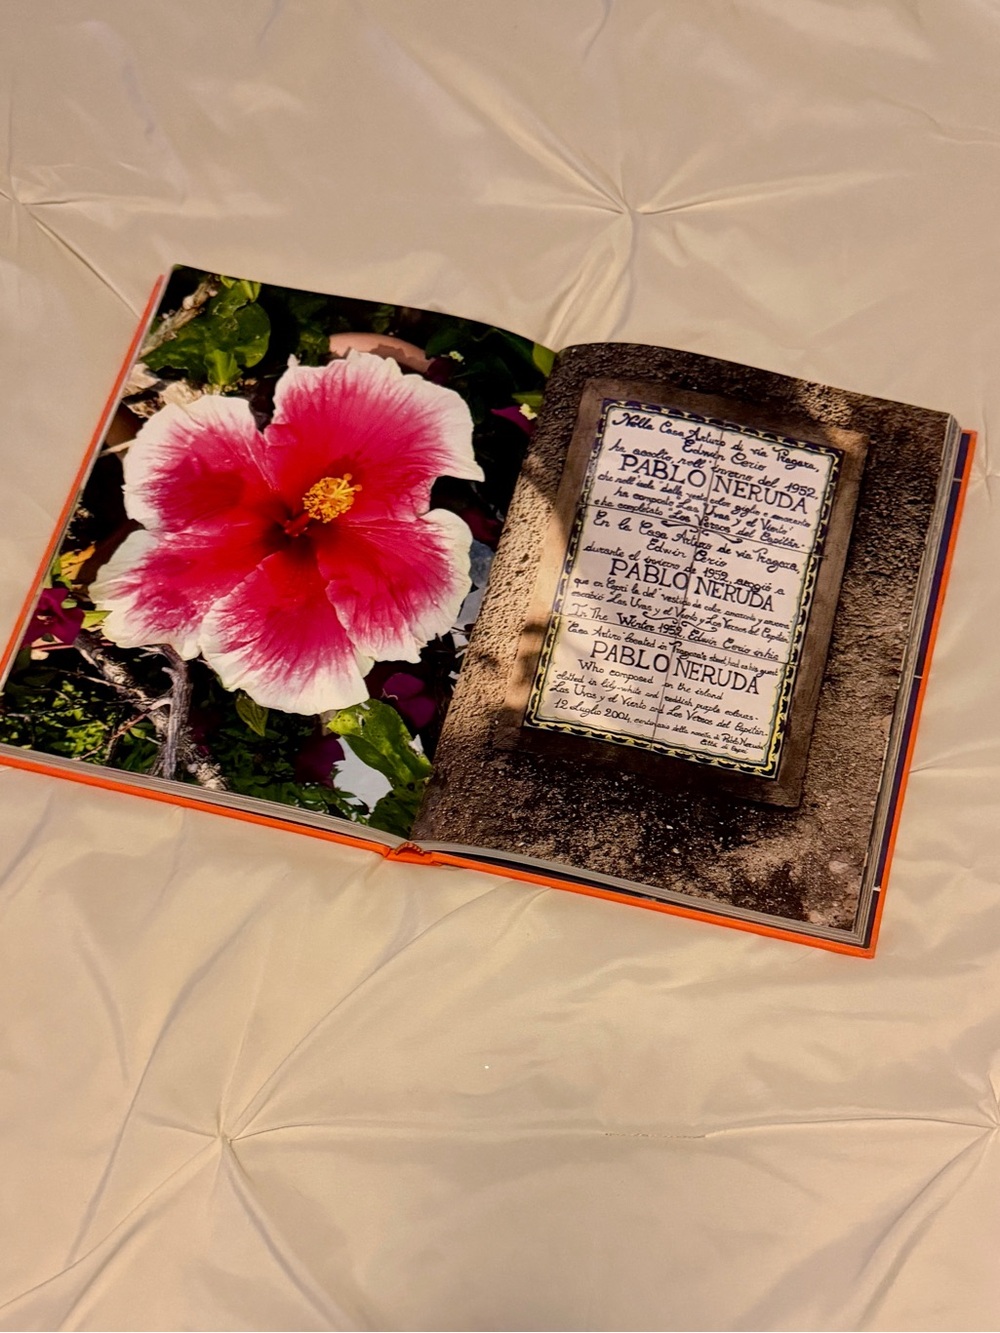 Nella Casa Arturo di via Pizzara,
Edwin Cerio
ha accolto nell'inverno del 1952,
PABLO NERUDA
che nell'isola dalla veste color giglio e amaranto
ha composto "Las Uvas y el Viento"
e ha completato "Los Versos del Capitán".
En la Casa Arturo de vía Pizzara,
Edwin Cerio
durante el invierno de 1952, acogió a
PABLO NERUDA
que en Capri la del vestido de color
escribió Las Uvas y el Viento y Los Versos del Capitán.
In The Winter 1952, Edwin Cerio in his
Casa Arturo located in Pizzara's street, had as his guest
PABLO NERUDA
Who composed on the island
clothed in lily-white and reddish purple colours:
Las Uvas y el Viento and Los Versos del Capitán.
12 luglio 2004, centenario della nascita di Pablo Neruda
Città di Capri